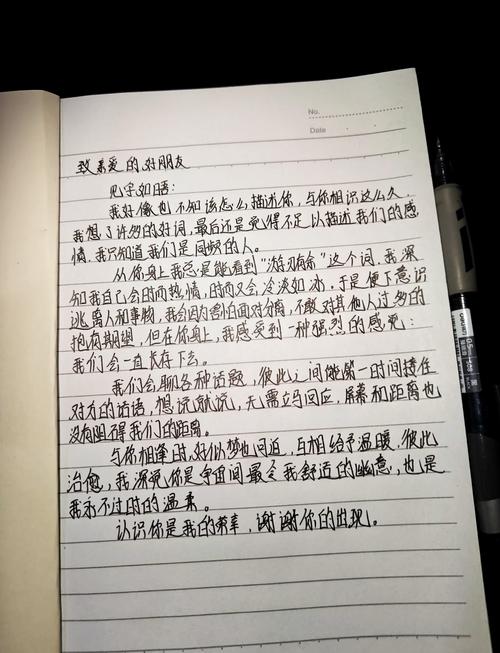 No.
Date
致亲爱的好朋友
见字如晤:
我好像也不知该怎么描述你,与你相识这么久,
我想了许多的好词,最后还是觉得不足以描述我们的感
情,我只知道我们是同频的人。
从你身上我总是能看到“游刃有余”这个词,我深
知我自己会时而热情,时而又会冷淡如冰,于是便下意识
逃离人和事物,我会因为害怕面对分离,不敢对其他人过多的
抱有期望,但在你身上,我感受到一种强烈的感觉:
我们会一直长存下去。
我们会聊各种话题,彼此之间能第一时间接住
对方的话语,想说就说,无需立马回应,屏幕和距离也
没有阻碍我们的距离。
与你相逢时,好似梦也回迫,互相给予温暖,彼此
治愈,我深觉你是宇宙间最令我舒适的幽意,也是
我永不过时的温柔。
认识你是我的荣幸,谢谢你的出现。